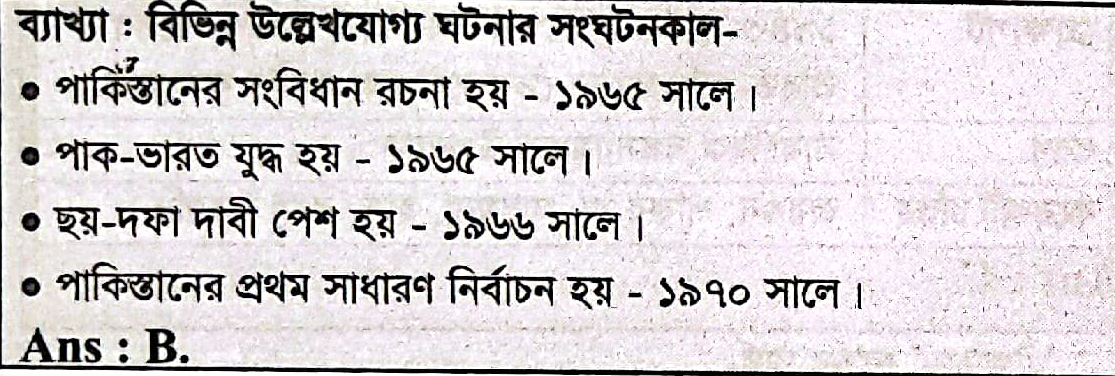 ব্যাখ্যা : বিভিন্ন উল্লেখযোগ্য ঘটনার সংঘটনকাল-
• পাকিস্তানের সংবিধান রচনা হয় - ১৯৬৫ সালে।
• পাক-ভারত যুদ্ধ হয় - ১৯৬৫ সালে।
• ছয়-দফা দাবী পেশ হয় - ১৯৬৬ সালে।
• পাকিস্তানের প্রথম সাধারণ নির্বাচন হয় - ১৯৭০ সালে।
Ans : B.